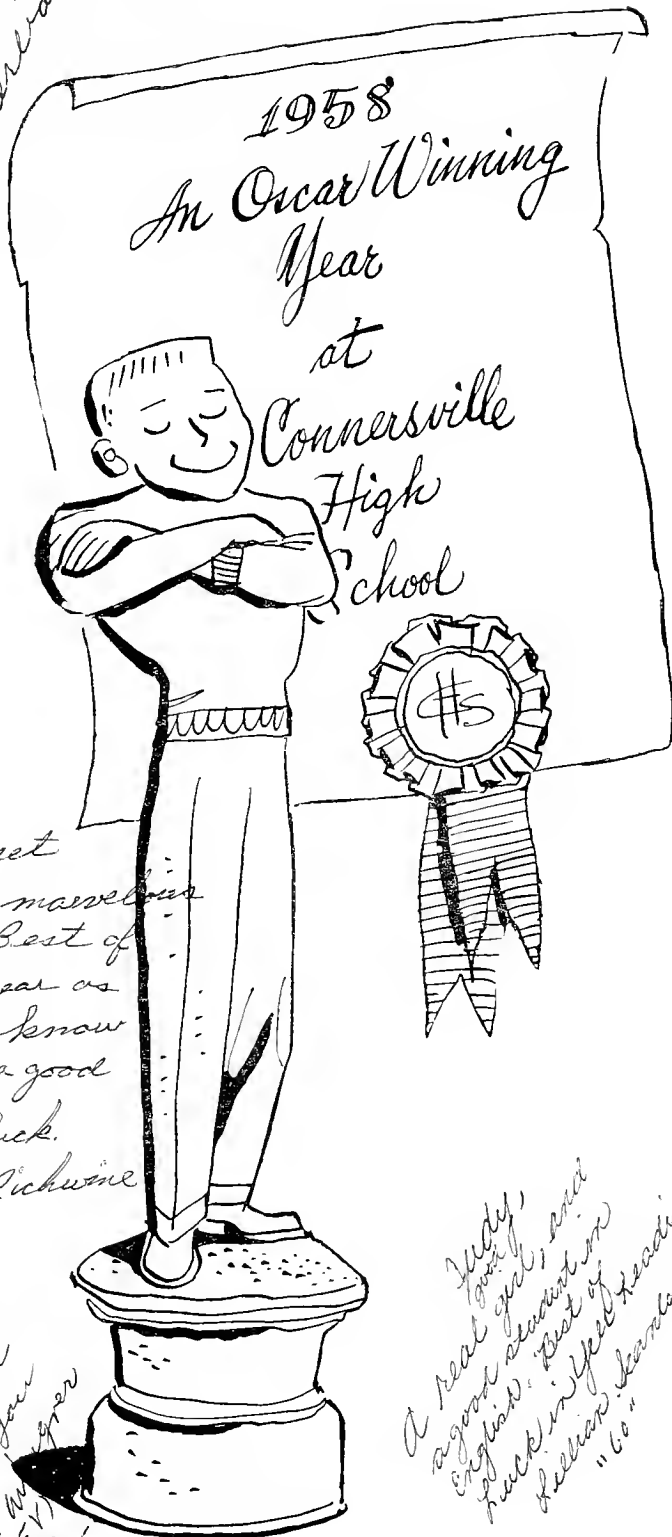 1958
An Oscar Winning
Year
at
Connersville
High
School
CHS
marvelous
Best of
ear as
know
a good
ck.
Richwine
you
Judy,
A real good girl, and
a good student in
English. Best of
Luck in Yell Leadi
Lillian
"60"